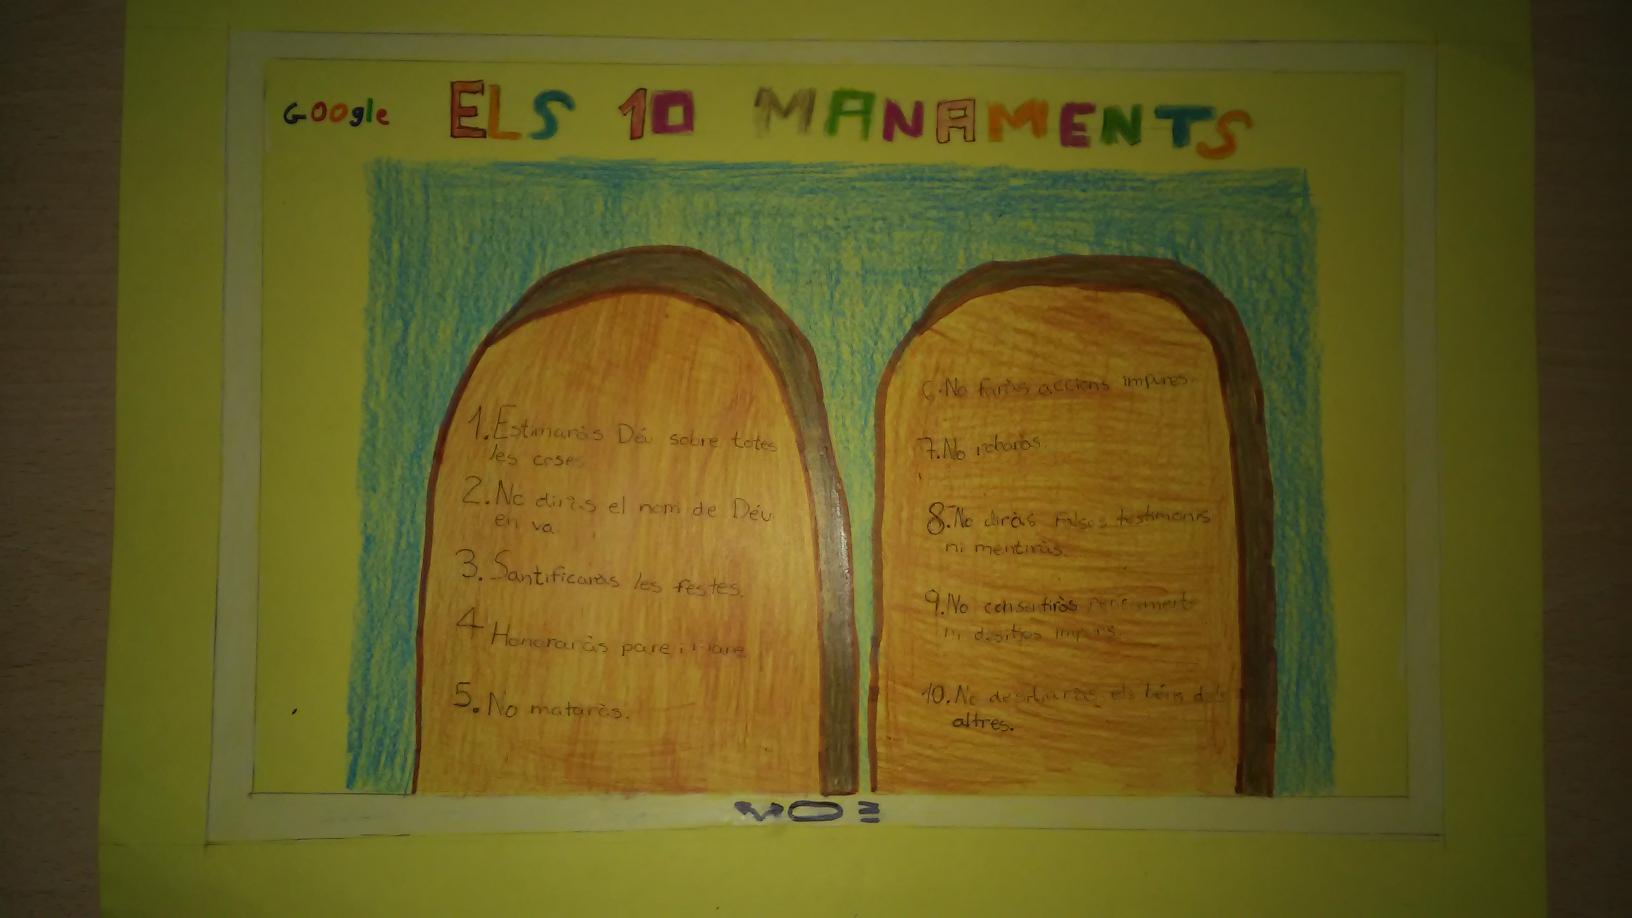 Google ELS 10 MANAMENTS
1. Estimaràs Déu sobre totes
les coses
2. No diràs el nom de Déu
en va
3. Santificaràs les festes.
4 Honoraràs pare i mare
5. No mataràs.
6. No faràs accions impures.
7. No robaràs.
8. No diràs falsos testimonis
ni mentiràs.
9. No consentiràs pensaments
ni desitjos impurs.
10. No desitjaràs els béns dels
altres.